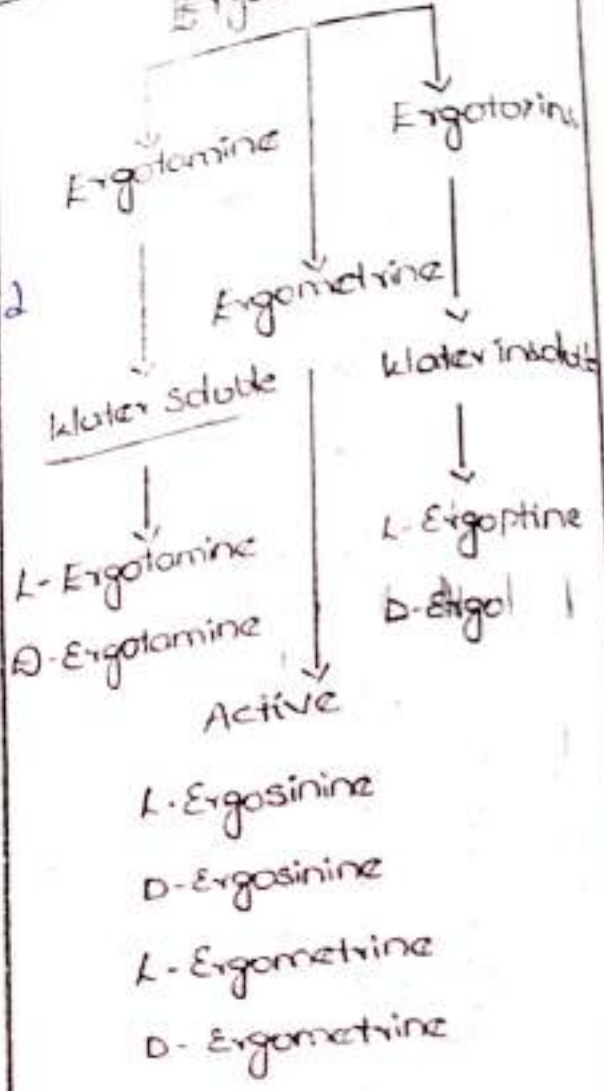 Ergotoxin
Ergotamine
Ergometrine
Water insolub
Water soluble
L-Ergoptine
L-Ergotamine
D-Ergotamine
Active
L-Ergosinine
D-Ergosinine
L-Ergometrine
D-Ergometrine